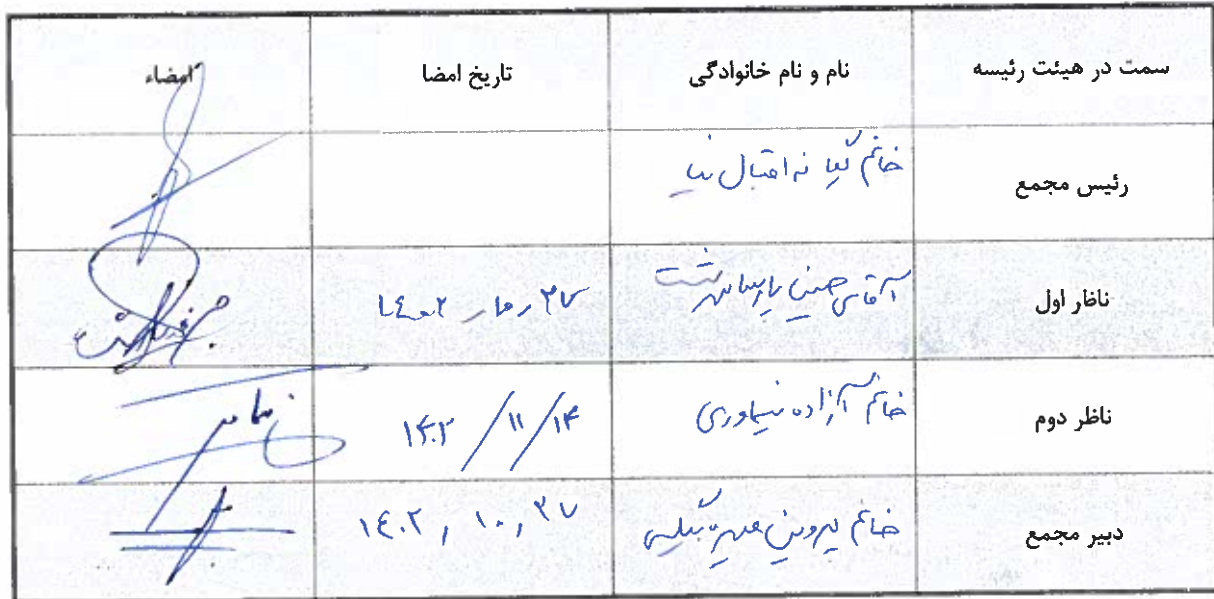 سمت در هیئت رئیسه نام و نام خانوادگی تاریخ امضا امضاء
رئیس مجمع خانم گیا نه اقبال نیا
ناظر اول آقای حسین پارسا سرشت ۲۷ ۱۴۰۲
ناظر دوم خانم آزاده نیساوری ۱۴۰۲/۱۱/۱۴
دبیر مجمع خانم پروین ۱۴۰۲,۱۰,۲۷